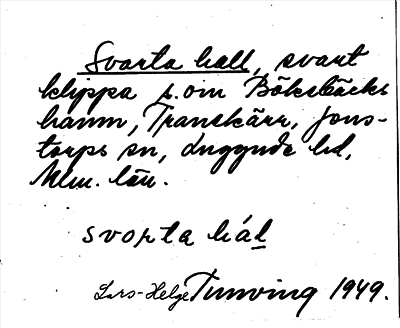 Svarta hall, svart
klippa s.om Böksbäcks
hamn, Transkärr, Jons-
torps sn, Luggude hd,
Mlm. län.
svorta hál
Lars-Helge Tunving 1949.